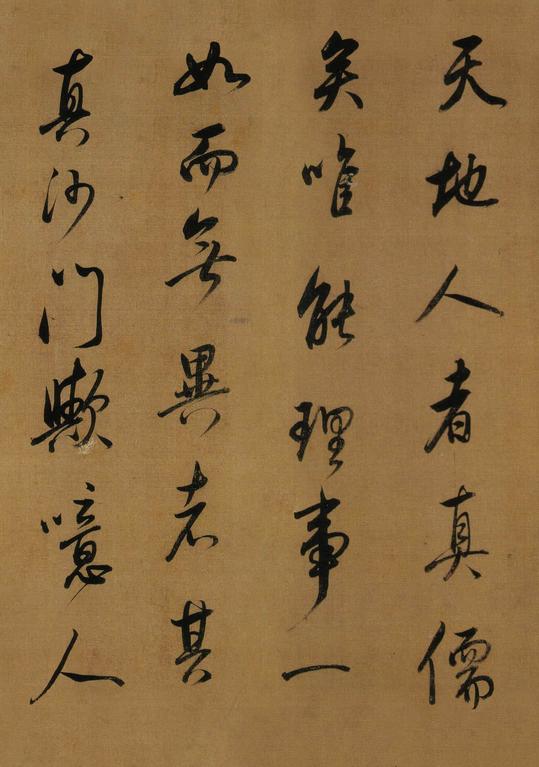 天地人者真儒
矣唯能理事一
如而無異者其
真沙門歟噫人